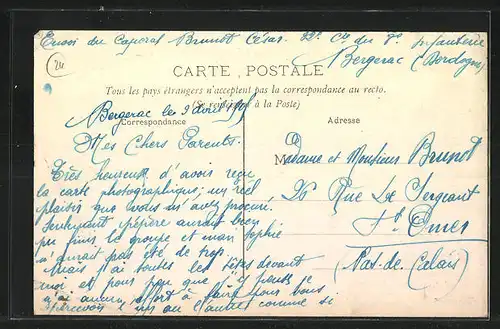 Envoi du Caporal Brunot César. 22e Cie du 7e infanterie
Bergerac (Dordogne)
CARTE POSTALE
Tous les pays étrangers n'acceptent pas la correspondance au recto.
(Se renseigner à la Poste)
Bergerac le 9 avril
Correspondance
Adresse
Mes Chers Parents.
Madame et Monsieur Brunot
Très heureux d'avoir reçu
la carte photographique; un réel
26 Rue Le Sergeant
plaisir que vous m'avez procuré.
St Omer
Seulement pépère aurait bien
pu finir le groupe et mari Sophie
n'aurait pas été de trop.
(Pas-de-Calais)
Mais j'ai toutes les têtes devant
moi et pour peu que j'y pense je
n'ai aucun effort à faire pour vous
apercevoir l'un ou l'autre comme si